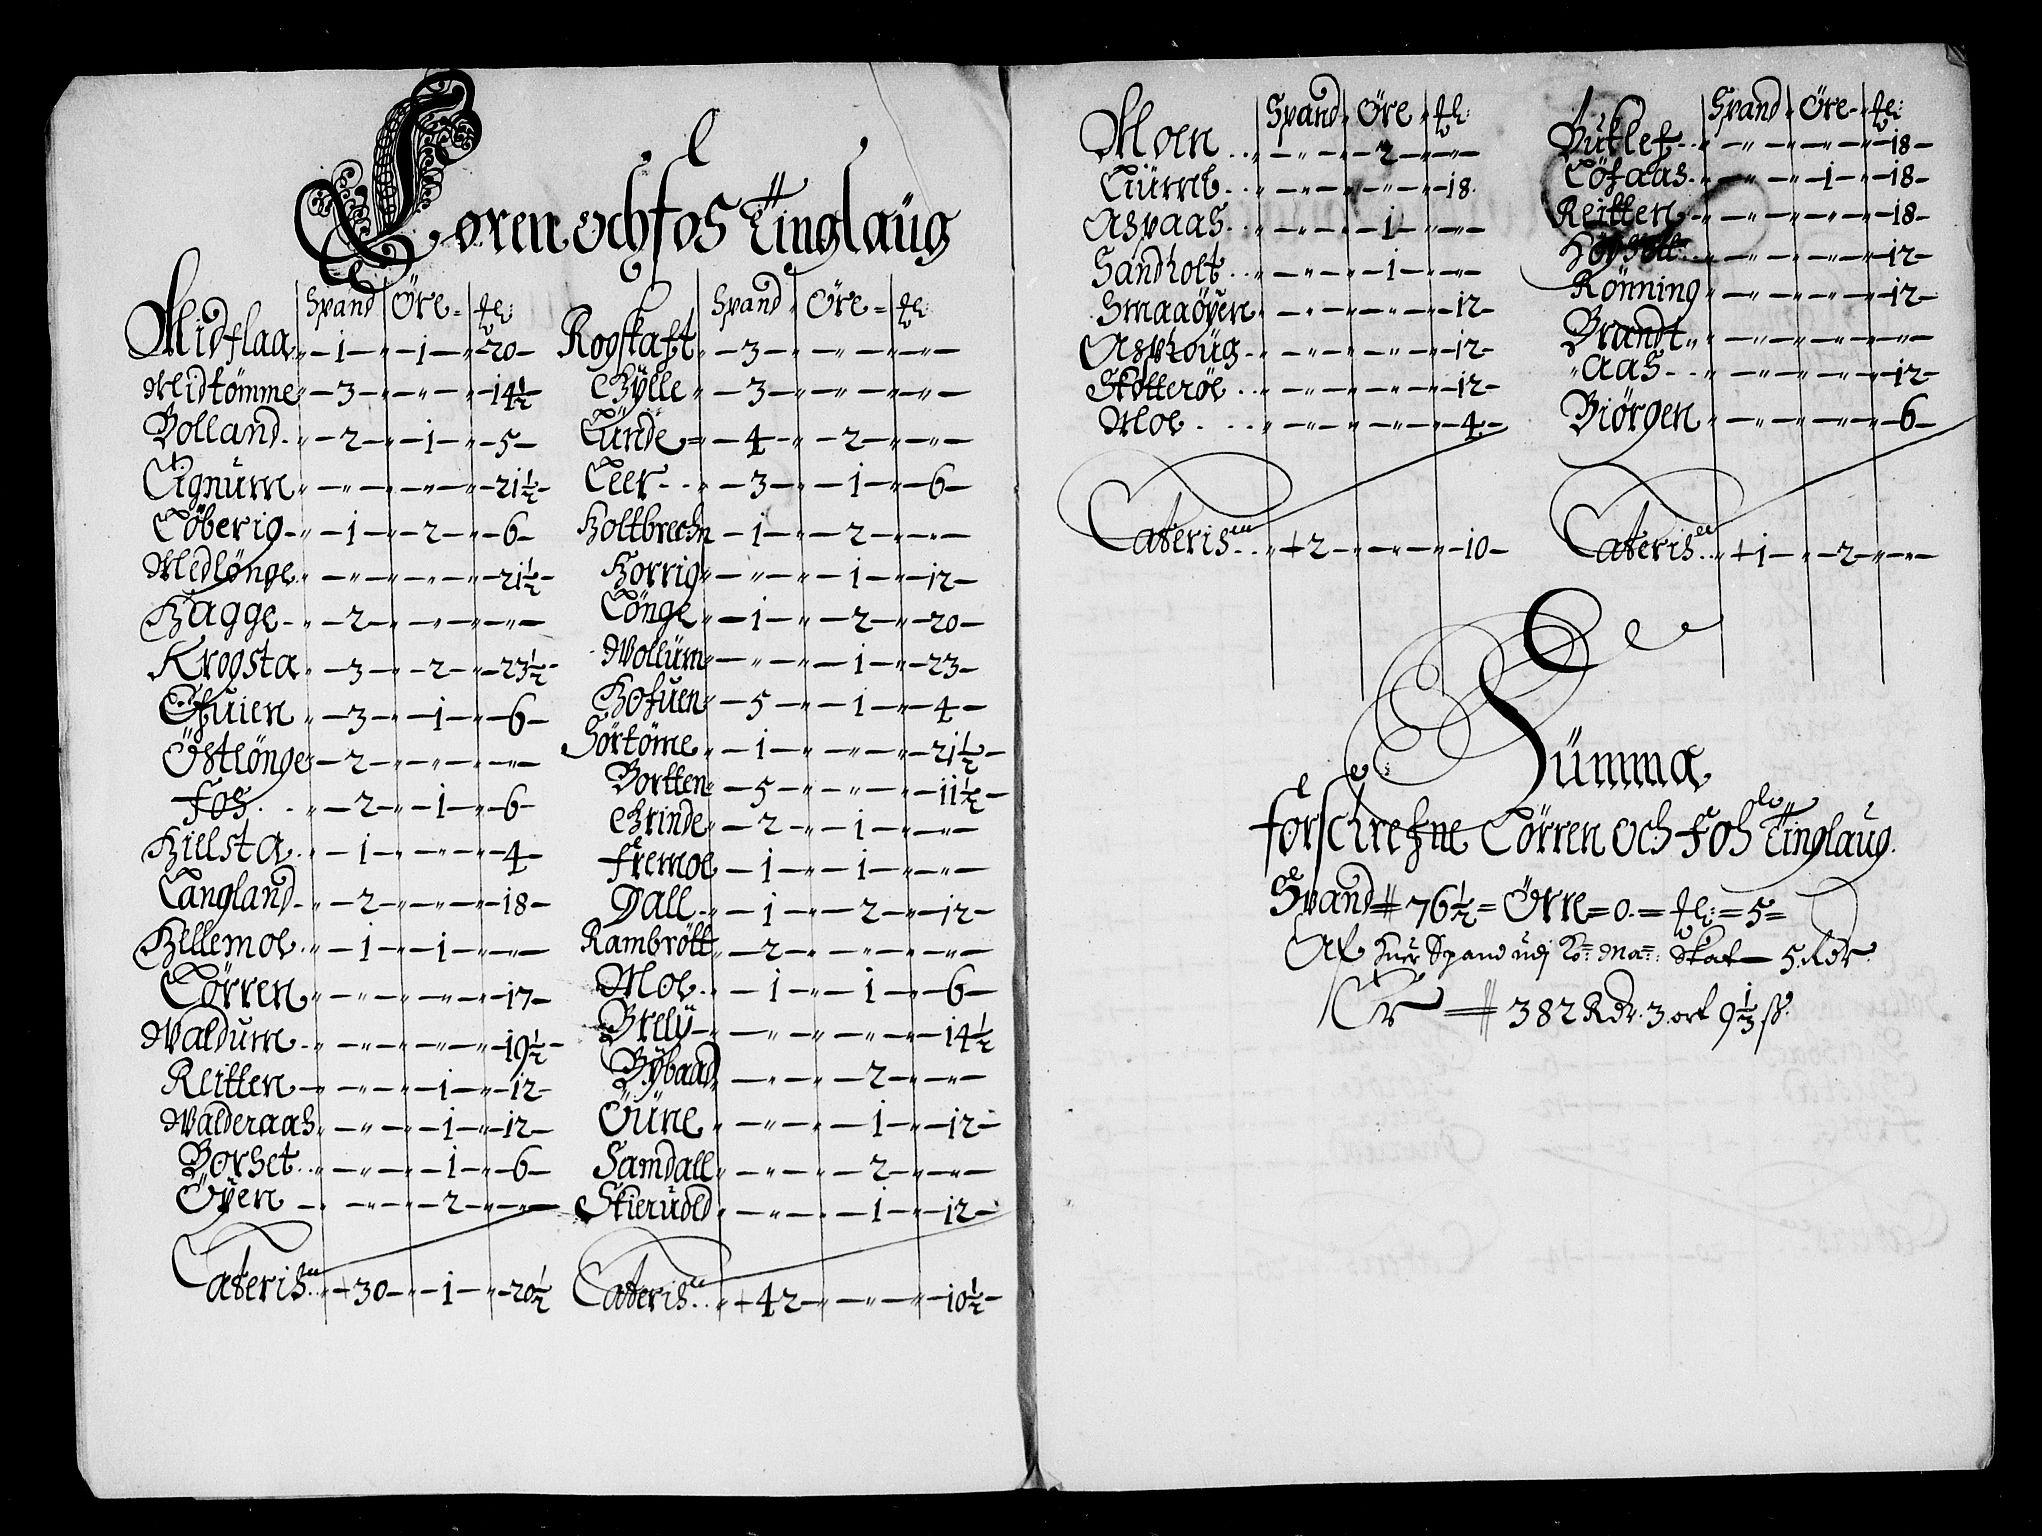 Løren och fos Tinglaüg
Spand Öre ℔:
Midflaa „ 1 „ 1 „ 20
Midtömme „ 3 „ „ „ 14½
Volland „ 2 „ 1 „ 5
Lignüm „ „ „ „ „ 21½
Löberig „ 1 „ 2 „ 6
Medlönge „ „ „ „ „ 21½
Hagge „ 2 „ „ „ „
Krogsta „ 3 „ 2 „ 23½
Efuien „ 3 „ 1 „ 6
Östlönge „ 2 „ „ „ „
Fos „ 2 „ 1 „ 6
Hielsta „ 1 „ „ „ 4
Langland „ 2 „ „ „ 18
Hellemoe „ 1 „ 1 „ „
Lörren „ „ „ „ „ 17
Valdum „ „ „ „ „ 19½
Reitten „ „ „ 1 „ 12
Valderaas „ „ „ 1 „ 12
Borset „ „ „ 1 „ 6
Öyen „ „ „ 2 „ „
Lateris „ +30 „ 1 „ 20½
Spand Öre ℔:
Rogstaft „ 3 „ „ „ „
Gylle „ 3 „ „ „ „
Lünde „ 4 „ 2 „ „
Leer „ 3 „ 1 „ 6
Holtbrechn „ 1 „ 2 „ „
Horrig „ „ „ 1 „ 12
Lönge „ 1 „ 2 „ 20
Vollum „ „ „ 1 „ 23
Hofuen „ 5 „ 1 „ 4
Sörtöme „ 1 „ „ „ 21½
Bortten „ 5 „ „ „ 11½
Grinde „ 2 „ 1 „ „
Fremoe „ 1 „ 1 „ „
Dall „ 1 „ 2 „ 12
Rambrött „ 2 „ „ „ „
Moe „ 1 „ 1 „ 6
Brelÿ „ „ „ „ „ 14½
Bÿbaad „ „ „ 2 „ „
Öüne „ „ „ 1 „ 12
Samdall „ „ „ 2 „ „
Skieruold „ „ „ 1 „ 12
Lateris „ +42 „ „ „ 10½
Spand Öre ℔:
Moen „ „ „ 2 „ „
Liüme „ „ „ „ „ 18
Aspaas „ „ „ 1 „ „
Sandholt „ „ „ 1 „ „
Smaaöyen „ „ „ „ „ 12
Asphoüg „ „ „ „ „ 12
Skotteröe „ „ „ „ „ 12
Moe „ „ „ „ „ 4
Lateris „ +2 „ „ „ 10
Spand Öre ℔:
Vutlef „ „ „ „ „ 18
Löfaas „ „ „ 1 „ 18
Reitten „ „ „ „ „ 18
„ „ „ „ „ 12
Rönning „ „ „ „ „ 12
Brandt „ „ „ „ „ „
Aas „ „ „ „ „ 12
Biörgen „ „ „ „ „ 6
Lateris „ +1 „ 2 „ „
Sümma
forschrefne Lörren och Fos Tinglaug.
Spand 76½ = Örre = 0 = ℔: = 5 =
Af huer Spand udj Ko: Ma: Skat 5 Rdr
Er 382 Rdr. 3 ort 9⅓ ß.